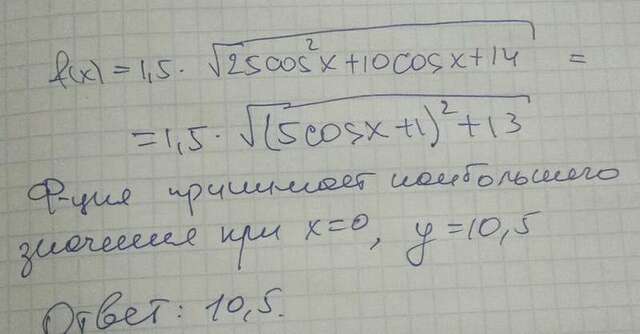 f(x) = 1,5 · √(25cos²x + 10cosx + 14) =
= 1,5 · √((5cosx + 1)² + 13)
Ф-ция принимает наибольшего
значения при x=0, y=10,5
Ответ: 10,5.